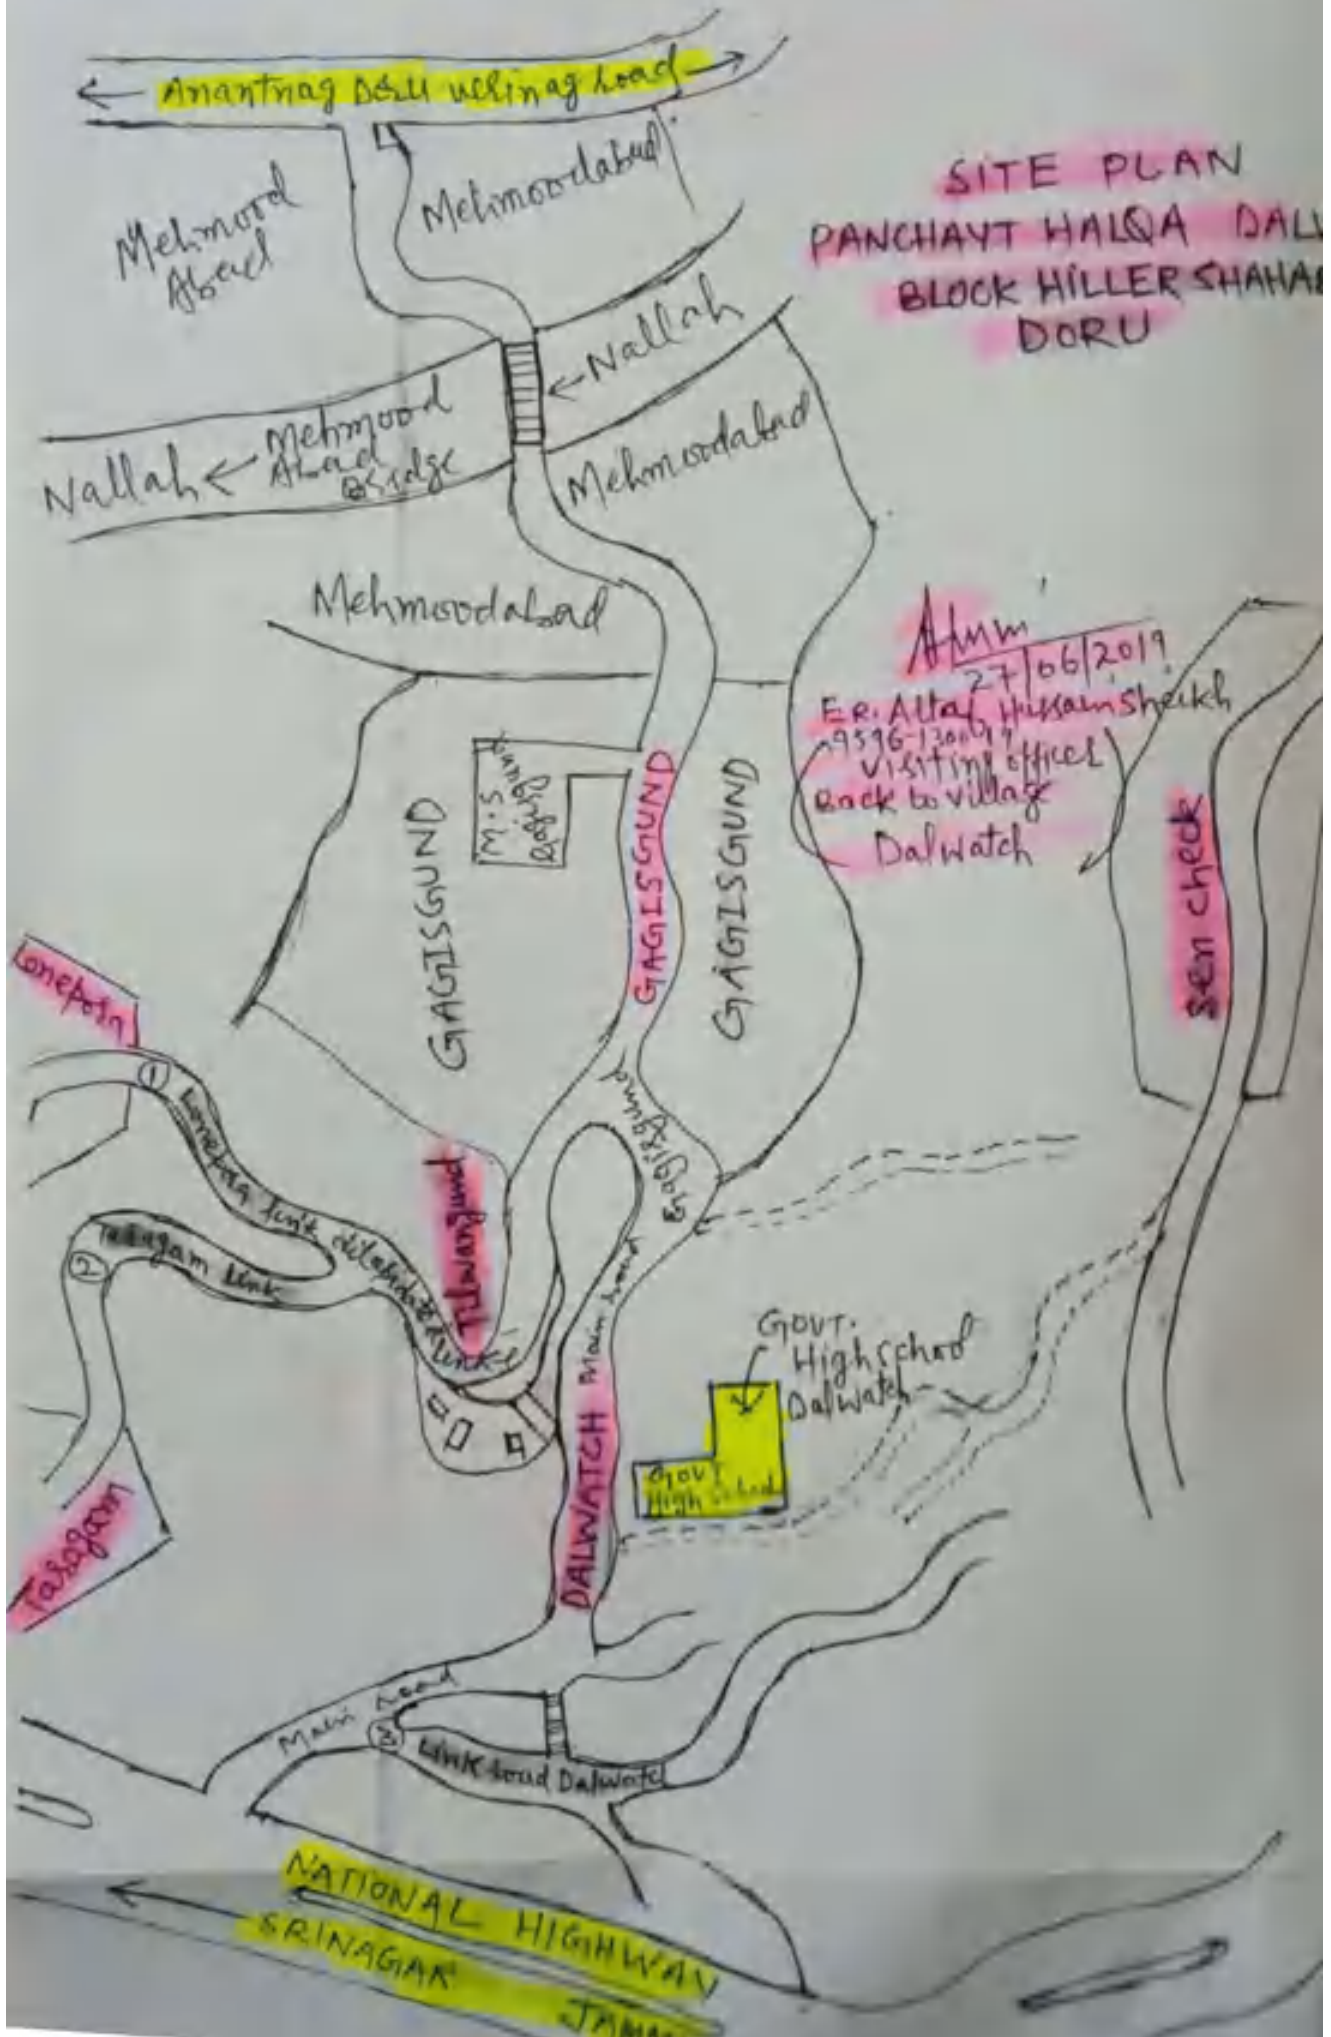 Anantnag Doru verinag road
SITE PLAN
PANCHAYT HALQA DALW
BLOCK HILLER SHAHAB
DORU
Mehmood
Abad
Mehmoodabad
Nallah
Mehmood
Abad
Bridge
Nallah
Mehmoodabad
Mehmoodabad
27/06/2019
ER. Altaf Hussain Sheikh
Visiting officer
Back to village
Dalwatch
M.S
GAGISGUND
GAGISGUND
GAGISGUND
Sen check
Lonepora
1
Lonepora link
Gagisgund
Tilwangund
2
Tasagam Link
Main road
DALWATCH
GOVT.
High school
Dalwatch
GOVT
High School
Tasagam
Main road
3
Link road Dalwatch
NATIONAL HIGHWAY
SRINAGAR JAMM